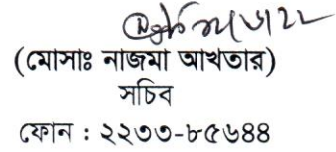 (মোসাঃ নাজমা আখতার)
সচিব
ফোন : ২২৩৩-৮৫৬৪৪